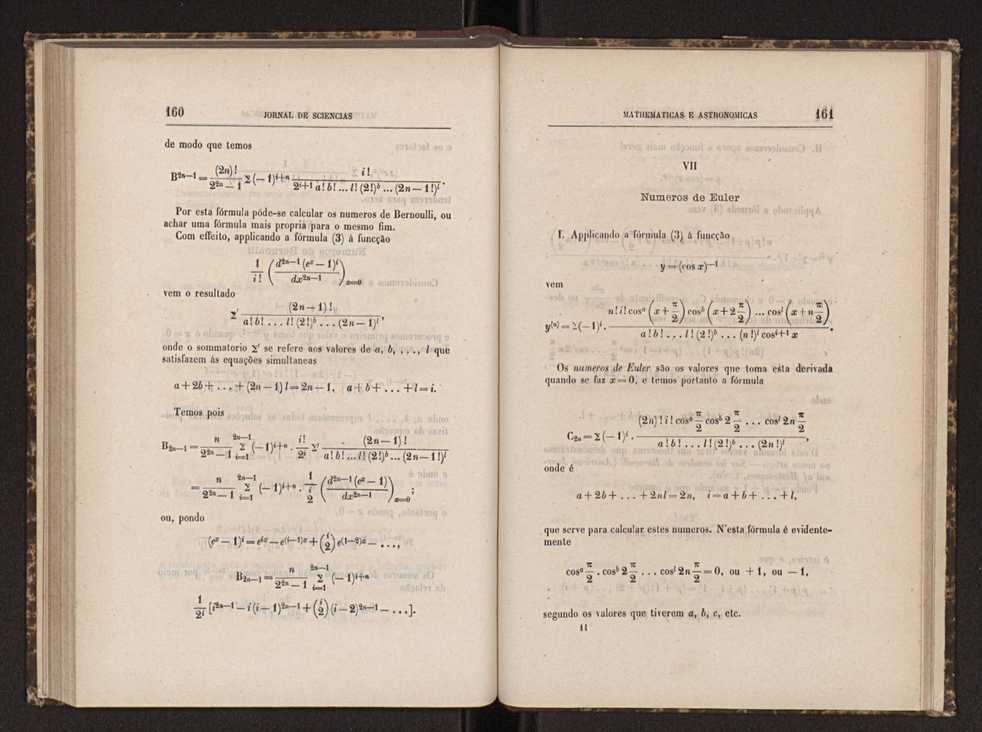 160 JORNAL DE SCIENCIAS
de modo que temos
B2n—1 = (2n)! / 2²ⁿ — 1 Σ (— 1)ⁱ⁺ⁿ i! / 2ⁱ⁺¹ a! b! ... l! (2!)ᵇ ... (2n — 1!)ˡ.
Por esta fórmula póde-se calcular os numeros de Bernoulli, ou
achar uma fórmula mais propria para o mesmo fim.
Com effeito, applicando a fórmula (3) á funcção
1 / i! (d²ⁿ⁻¹ (eˣ — 1)ⁱ / dx²ⁿ⁻¹)x=0
vem o resultado
Σ' (2n — 1)! / a! b! ... l! (2!)ᵇ ... (2n — 1)!ˡ,
onde o sommatorio Σ' se refere aos valores de a, b, ..., l que
satisfazem ás equações simultaneas
a + 2b + ... + (2n — 1) l = 2n — 1, a + b + ... + l = i.
Temos pois
B2n—1 = n / 2²ⁿ — 1 2n—1 Σ i=1 (— 1)ⁱ⁺ⁿ . i! / 2ⁱ Σ' (2n — 1)! / a! b! ... l! (2!)ᵇ ... (2n — 1!)ˡ
= n / 2²ⁿ — 1 2n—1 Σ i=1 (— 1)ⁱ⁺ⁿ . 1 / i / 2 (d²ⁿ⁻¹ (eˣ — 1) / dx²ⁿ⁻¹)x=0;
ou, pondo
(eˣ — 1)ⁱ = eⁱˣ — e⁽ⁱ⁻¹⁾ˣ + (i/2) e⁽¹⁻²⁾ˣ — ...,
B2n—1 = n / 2²ⁿ — 1 2n—1 Σ i=1 (— 1)ⁱ⁺ⁿ
1 / 2ⁱ [i²ⁿ⁻¹ — i (i — 1)²ⁿ⁻¹ + (i/2) (i — 2)²ⁿ⁻¹ — ...].
MATHEMATICAS E ASTRONOMICAS 161
VII
Numeros de Euler
I. Applicando a fórmula (3) á funcção
y = (cos x)⁻¹
vem
y⁽ⁿ⁾ = Σ (— 1)ⁱ . n! i! cosᵃ (x + π/2) cosᵇ (x + 2 π/2) ... cosˡ (x + n π/2) / a! b! ... l! (2!)ᵇ ... (n!)ˡ cosⁱ⁺¹ x.
Os numeros de Euler são os valores que toma esta derivada
quando se faz x = 0, e temos portanto a fórmula
C2n = Σ (— 1)ⁱ . (2n)! i! cosᵃ π/2 cosᵇ 2 π/2 ... cosˡ 2n π/2 / a! b! ... l! (2!)ᵇ ... (2n!)ˡ,
onde é
a + 2b + ... + 2nl = 2n, i = a + b + ... + l,
que serve para calcular estes numeros. N'esta fórmula é evidente-
mente
cosᵃ π/2 . cosᵇ 2 π/2 ... cosˡ 2n π/2 = 0, ou + 1, ou — 1,
segundo os valores que tiverem a, b, c, etc.
11